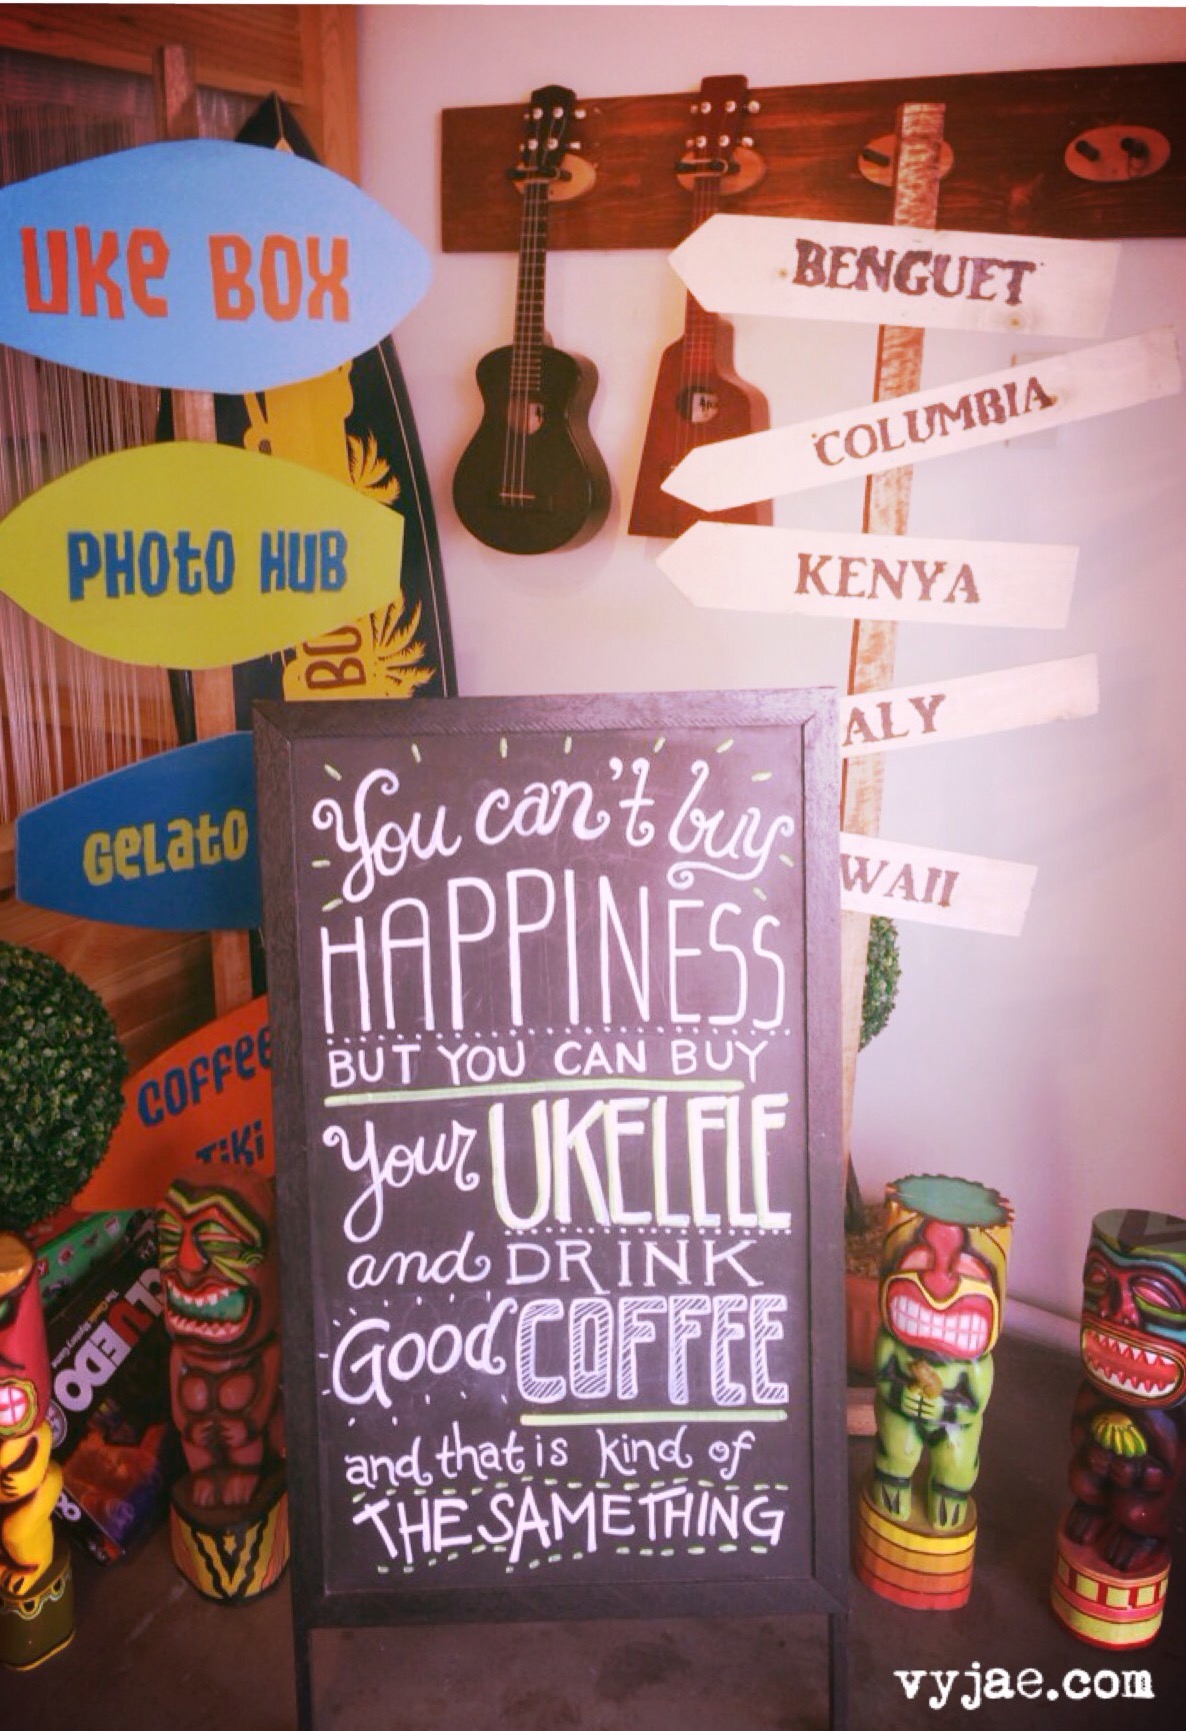 UKE BOX
PHOTO HUB
GELATO
COFFEE
TIKI
BENGUET
COLUMBIA
KENYA
ALY
WAII
BO
You can't buy
HAPPINESS
BUT YOU CAN BUY
Your UKELELE
and DRINK
Good COFFEE
and that is kind of
THE SAME THING
CLUEDO
vyjae.com